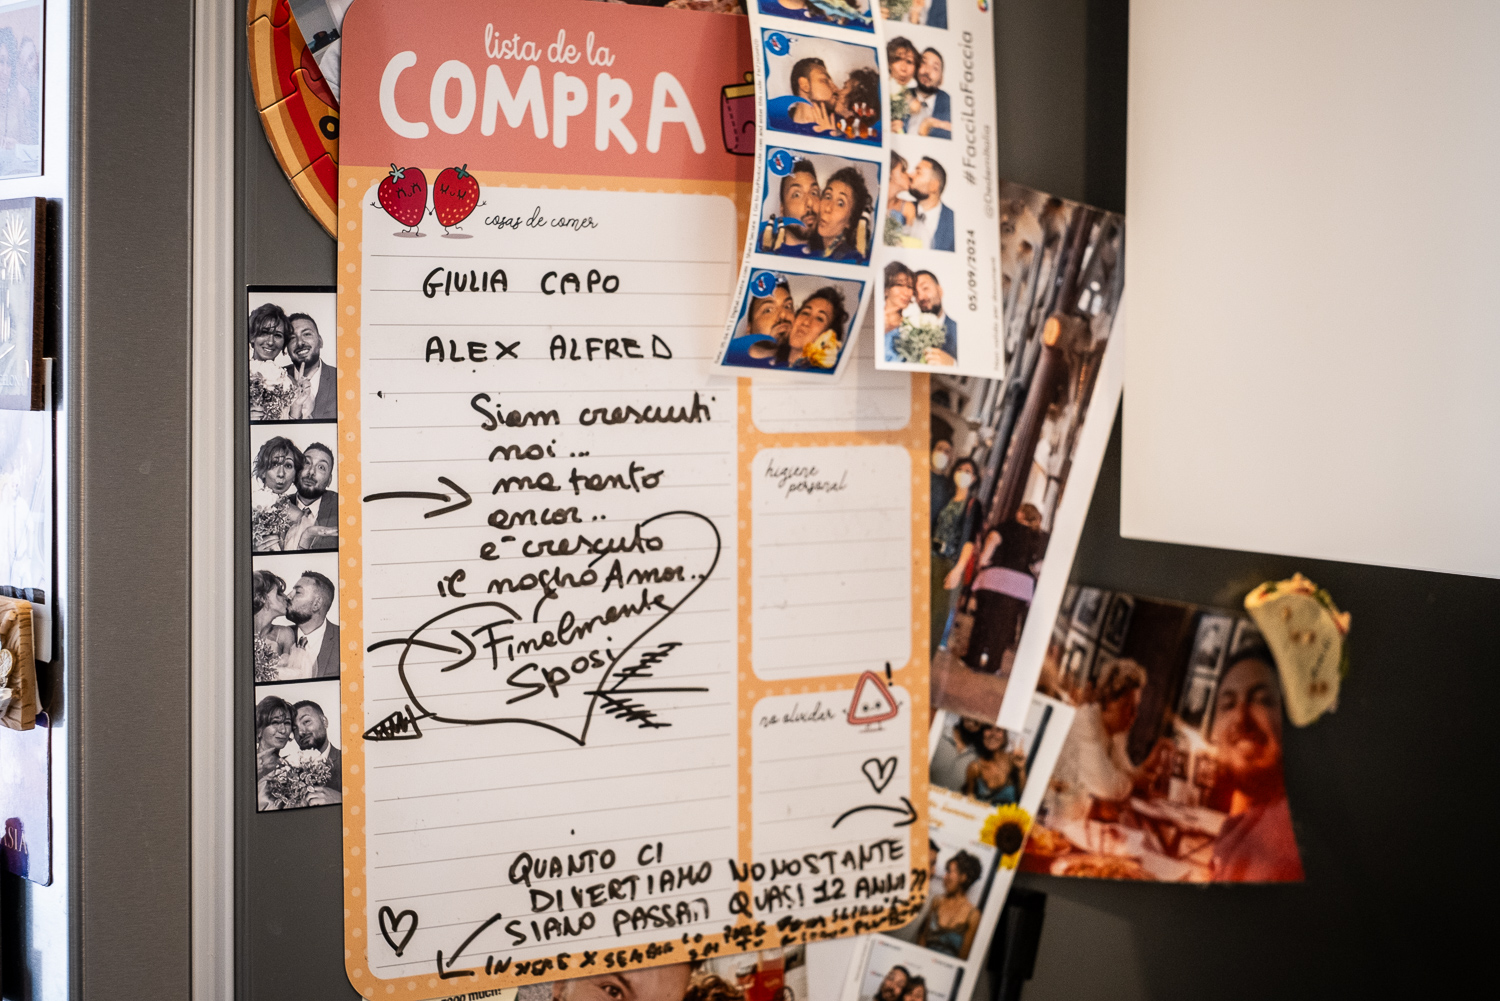 lista de la
COMPRA
cosas de comer
GIULIA CAPO
ALEX ALFRED
Siam cresciuti
noi...
ma tanto
ancor..
è cresciuto
il nostro Amor..
Finalmente
Sposi
QUANTO CI
DIVERTIAMO NONOSTANTE
SIANO PASSATI QUASI 12 ANNI??
INSIEME X SEMPRE
higiene
personal
no olvidar
!
#FacciLaFaccia
05/09/2024